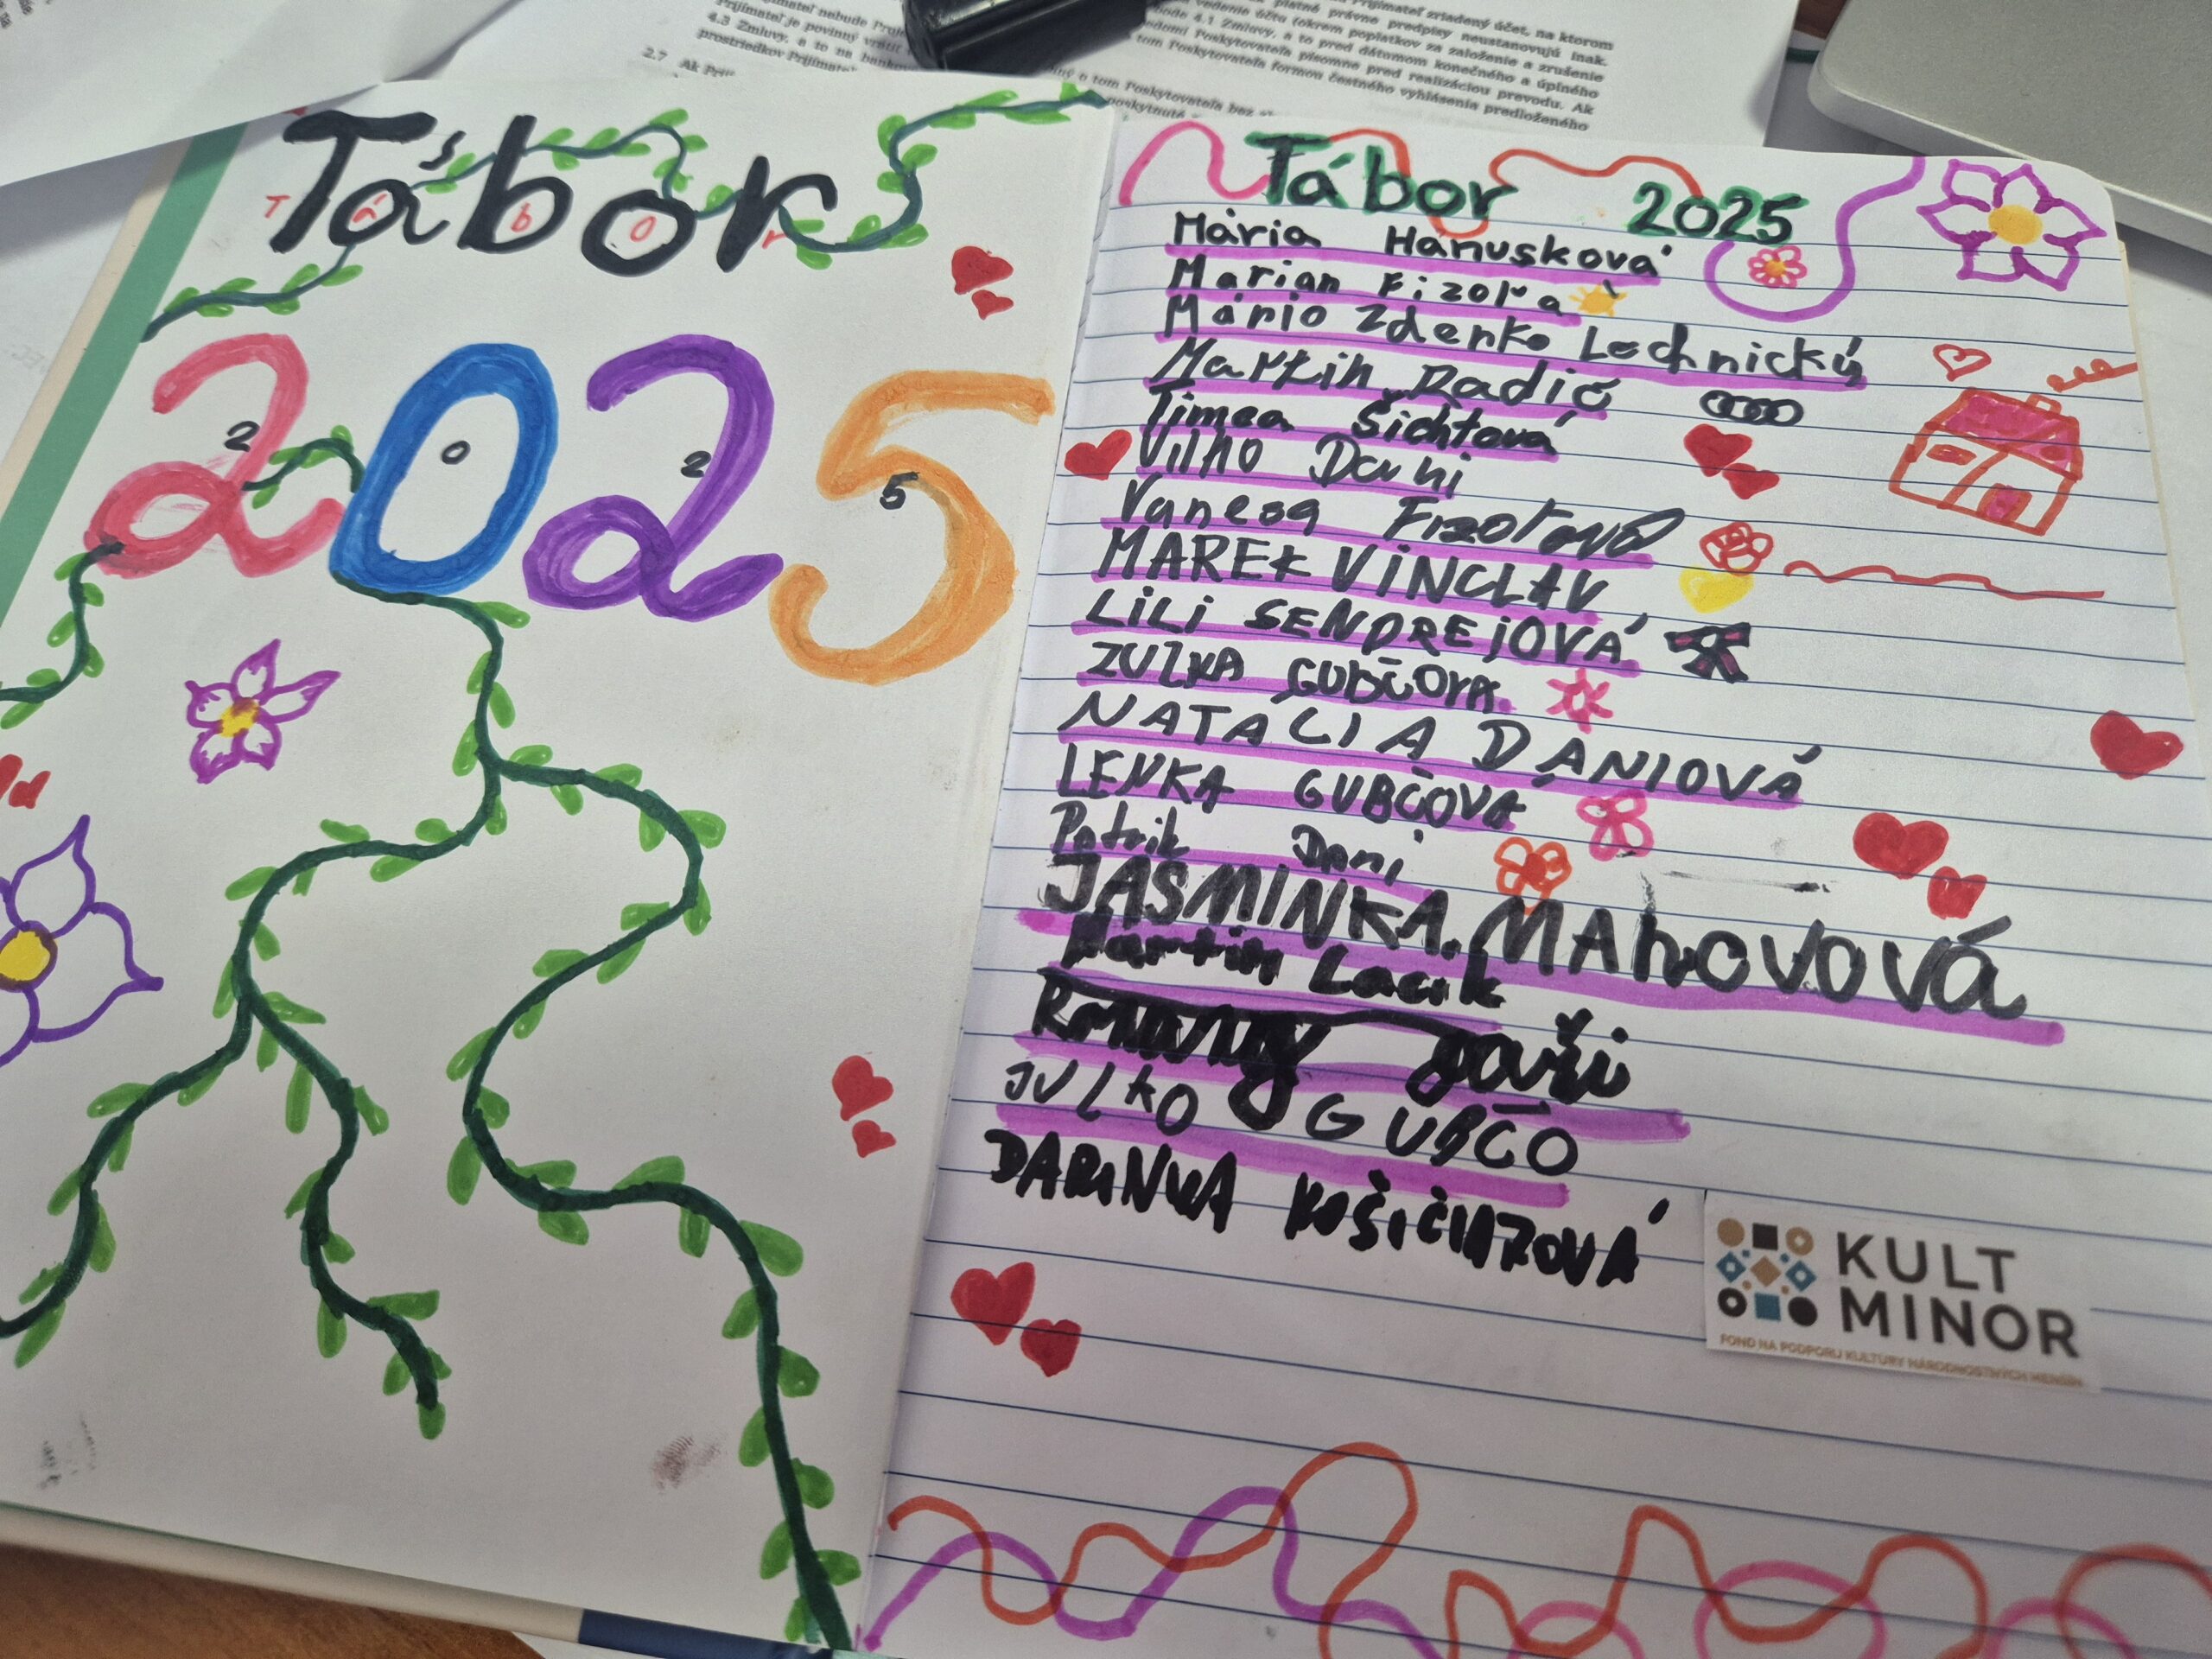 Prijímateľ nebude
Prijímateľ je povinný vrátiť
4.3 Zmluvy, a to na
prostriedkov
2.7 Ak
platné právne predpisy neustanovujú inak.
Prijímateľ zriadený účet, na ktorom
vedenie účtu (okrem poplatkov za založenie a zrušenie
bode 4.1 Zmluvy, a to pred dátumom konečného a úplného
Poskytovateľa písomne pred realizáciou prevodu. Ak
tom Poskytovateľa formou čestného vyhlásenia predloženého
o tom Poskytovateľa bez
poskytnuté
Tábor
T á b o r
2025
2 0 2 5
Tábor 2025
Mária Hanusková
Marian Fizoľa
Mário Zdenko Lochnický
Martin Radič
Timea Šichtová
Vilho Dani
Vanesa
MAREK VINCLAV
LiLi SENDREJOVÁ
ZUZKA GUBČOVA
NATÁLIA DANIOVÁ
LENKA GUBČOVA
Patrik Dani
JASMINKA MAhOVOVá
Martin Lacik
JULKO GUBČO
DARINKA
KULT
MINOR
FOND NA PODPORU KULTÚRY NÁRODNOSTNÝCH MENŠÍN